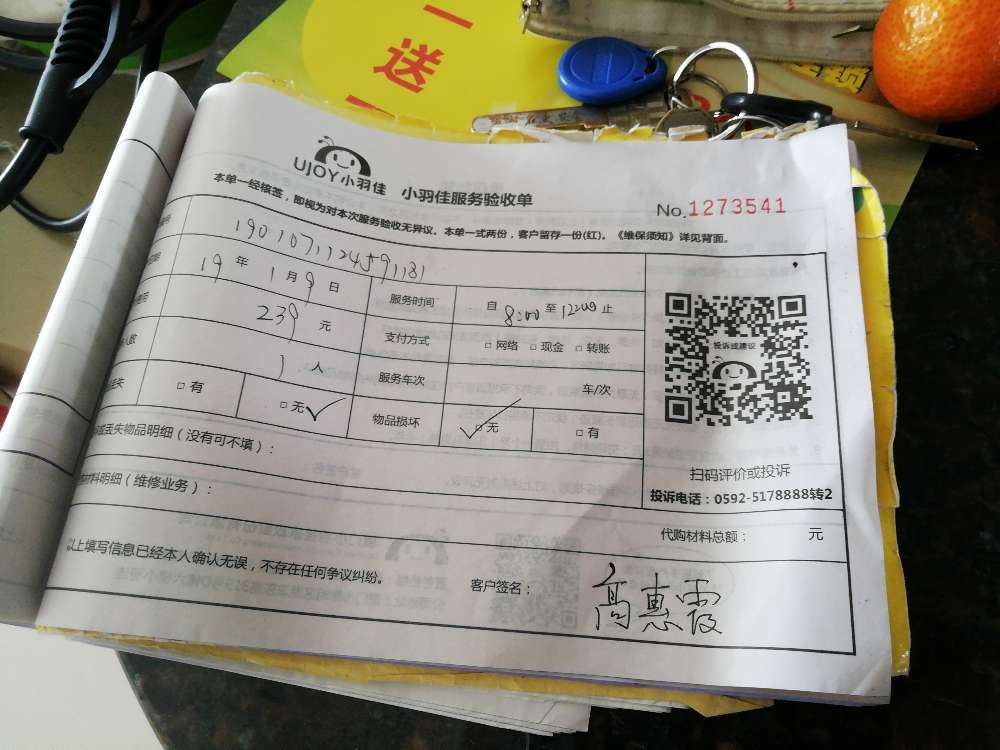 一
送
UJOY小羽佳 小羽佳服务验收单
No.1273541
本单一经核签，即视为对本次服务验收无异议。本单一式两份，客户留存一份(红)。《维保须知》详见背面。
1901071124591181
19年1月9日 服务时间 自8:00至12:00止
239元 支付方式 □网络 □现金 □转账
1人 服务车次 车/次
□有 □无✓ 物品损坏 □无✓ □有
丢失物品明细（没有可不填）：
投诉或建议
扫码评价或投诉
投诉电话：0592-5178888转2
材料明细（维修业务）：
代购材料总额： 元
以上填写信息已经本人确认无误，不存在任何争议纠纷。
客户签名：高惠霞